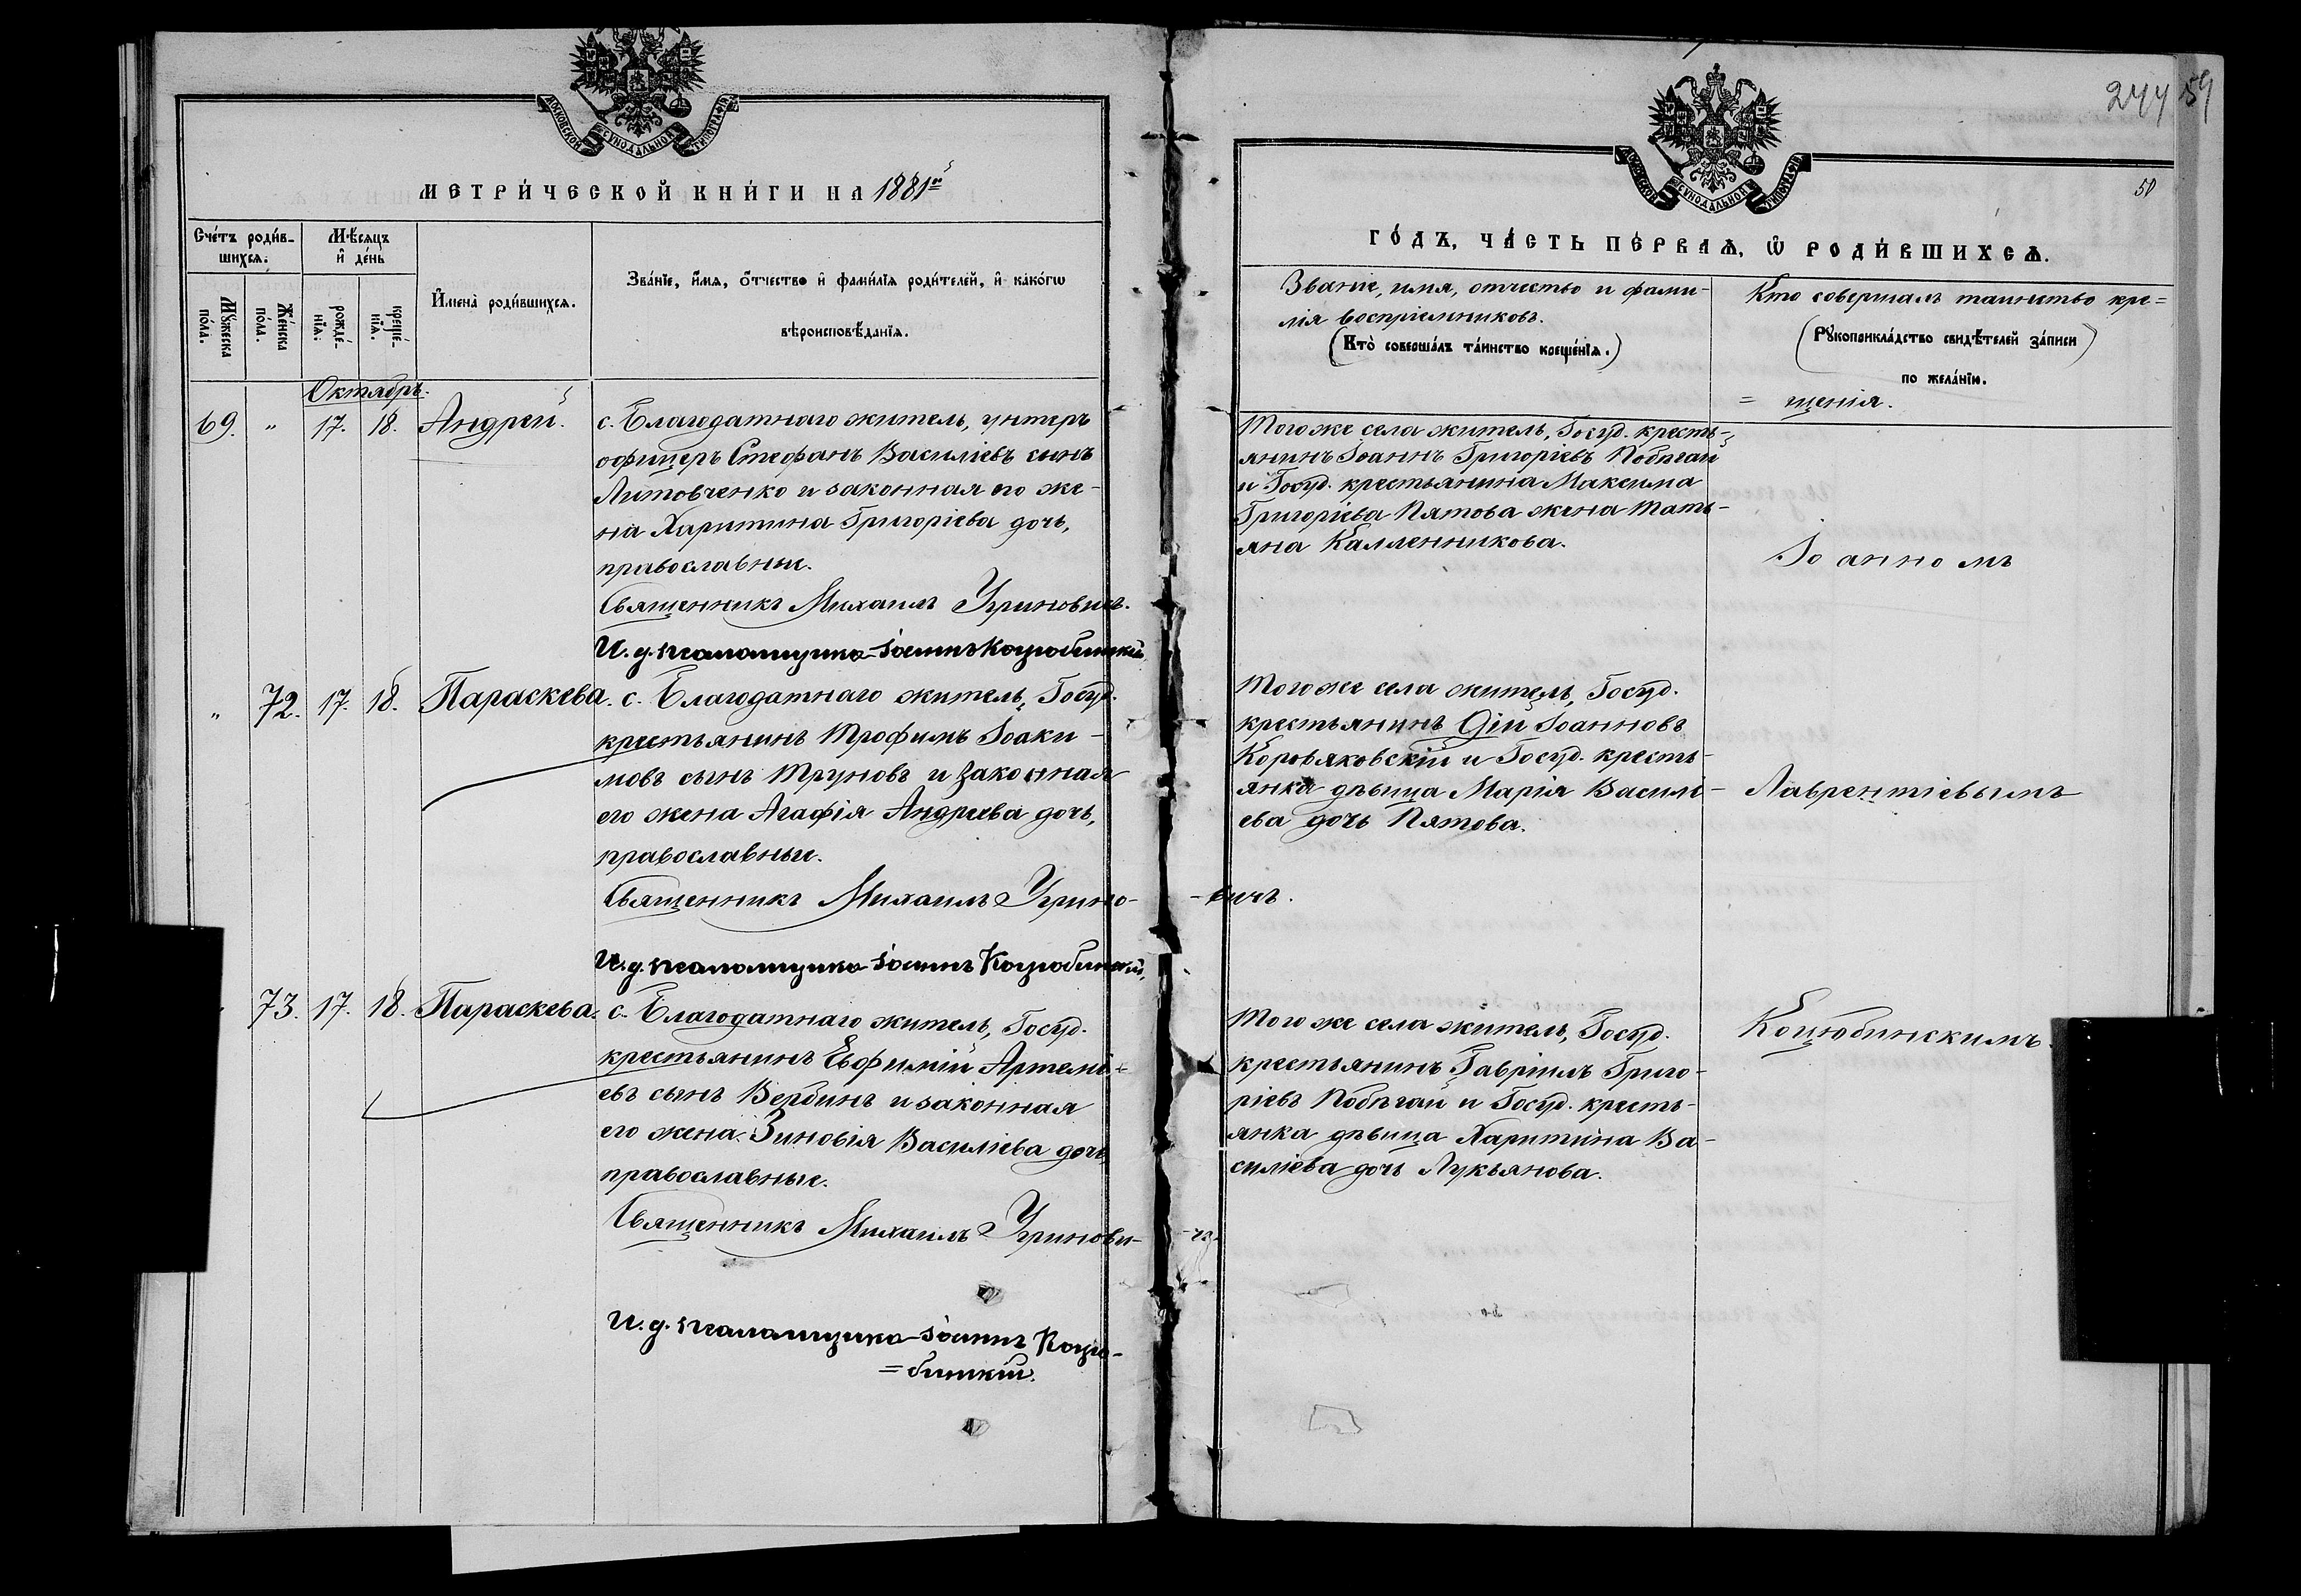 МОСКОВСКОЙ СѴНОДАЛЬНОЙ ТИПОГРАФІИ
МЕТРИ́ЧЕСКОЙ КНИ́ГИ НА 1881й
Сче́тъ роди́в-
шихсѧ.
Мѣ́сѧцъ
и҆ де́нь
Мꙋ́жеска
по́ла.
Же́нска
по́ла.
рожде́-
нїѧ.
креще́-
нїѧ.
И҆мена̀ роди́вшихсѧ.
Зва́нїе, и҆́мѧ, ѻ҆́тчество и҆ фами́лїѧ роди́телей, и҆ како́гѡ
вѣроисповѣ́данїѧ.
Октябрь.
69. „ 17. 18. Андрей.
с. Благодатнаго житель, унтеръ
офицеръ Стефанъ Василіевъ сынъ
Литовченко и законная его же-
на Харитина Григоріева дочь,
православные.
Священникъ Михаилъ Угриновичъ.
И. д. псаломщика Іоаннъ Коцюбинскій
„ 72. 17. 18. Параскева.
с. Благодатнаго житель, Госуд.
крестьянинъ Трофимъ Іоаки-
мовъ сынъ Труновъ и законная
его жена Агафія Андреева дочь,
православные.
Священникъ Михаилъ Угрино-
-вичъ.
И. д. псаломщика Іоаннъ Коцюбинскій.
73. 17. 18. Параскева.
с. Благодатнаго житель, Госуд.
крестьянинъ Евфимій Артемі-
евъ сынъ Вербинъ и законная
его жена Зиновія Василіева дочь,
православные.
Священникъ Михаилъ Угринови-
-чъ.
И. д. псаломщика Іоаннъ Коцю-
=бинскій.
244 59
МОСКОВСКОЙ СѴНОДАЛЬНОЙ ТИПОГРАФІИ
50
ГО́ДЪ, ЧА́СТЬ ПЕ́РВАѦ, Ѡ҆ РОДИ́ВШИХСѦ.
Званіе, имя, отчество и фами-
лія воспріемниковъ.
(Кто̀ соверша́лъ та́инство креще́нїѧ.)
Кто совершалъ таинство кре=
(Рꙋкоприкла́дство свидѣ́телей за́писи
по жела́нїю.
= щенія.
Того же села житель, Госуд. кресть-
янинъ Іоаннъ Григоріевъ Побѣгай
и Госуд. крестьянина Максима
Григоріева Пятова жена Тать-
яна Каллинникова.
Іоанномъ
Того же села житель, Госуд.
крестьянинъ Ѳіи Іоанновъ
Коровяковскій и Госуд. кресть-
янка дѣвица Марія Василі-
ева дочь Пятова.
Лаврентіевымъ
Того же села житель, Госуд.
крестьянинъ Гавріилъ Григо-
ріевъ Побѣгай и Госуд. кресть-
янка дѣвица Харитина Ва-
силіева дочь Лукьянова.
Коцюбинскимъ.